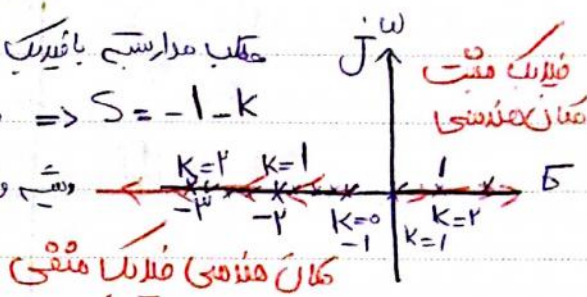 قطب مدار بسته با فیدبک
jω
فیدبک مثبت
مکان هندسی
=> S = -1-K
K=۲ K=1
-۳ -۲
K=0
-1
K=1
1
K=۲
σ
مکان هندسی فیدبک منفی